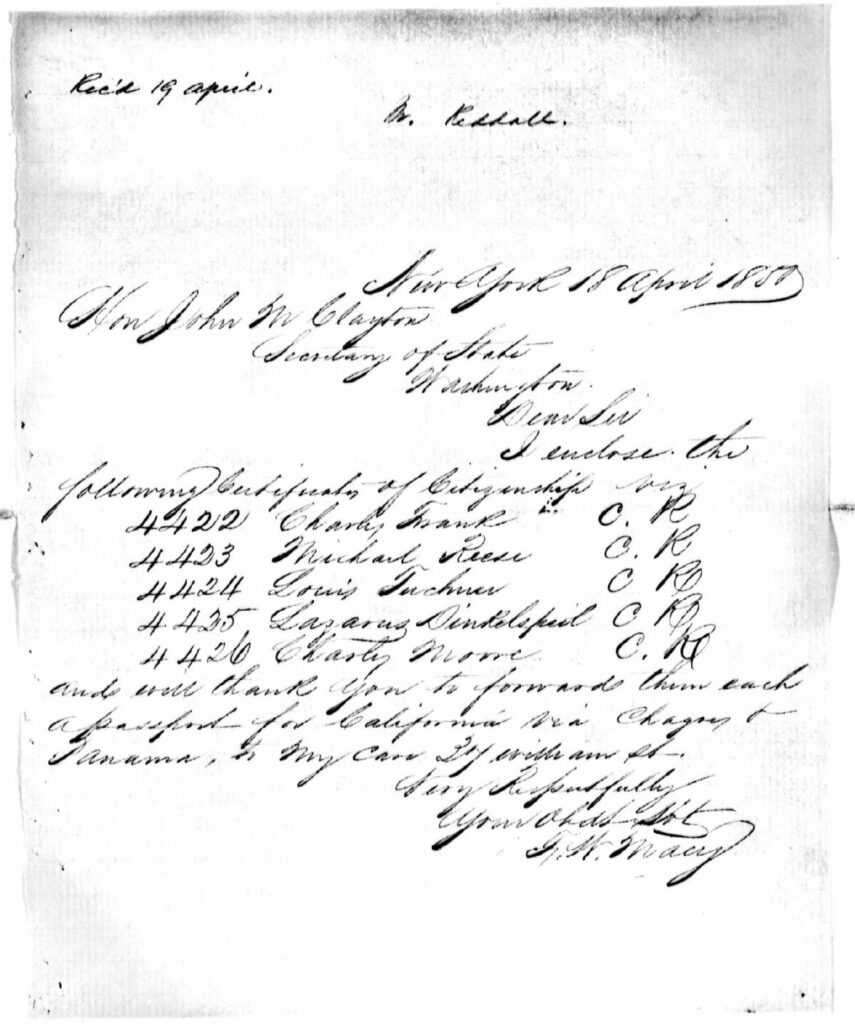 Rec'd 19 april.
M. Reddall.
New York 18 April 1850
Hon John M Clayton
Secretary of State
Washington.
Dear Sir
I enclose the
following Certificates of Citizenship viz
4422 Charles Frank C. R
4423 Michael Reese C. R
4424 Louis Tuchner C R
4425 Lazarus Dinkelspeil C R
4426 Charles Moore C. R
and will thank you to forward them each
a passport for California via Chagres &
Panama, to my care 37 william st.
Very Respectfully
Your Obdt Svt